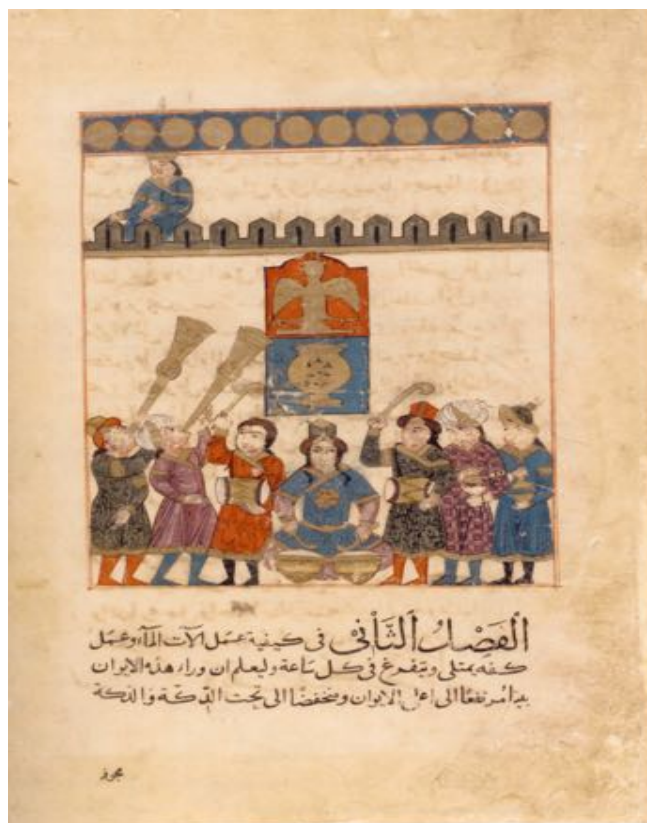 الفَصْلُ الثَّانْي في كيفية عمَل الات المآء وعمَل
كفه يمتلى ويتفرغ فى كل سَاعة وليعلم ان وراء هذه الايوان
بيتا مرتفعًا الى اعلى الايوان ومنخفضًا الى تحت الدِّكّة والدكة
مجوفة